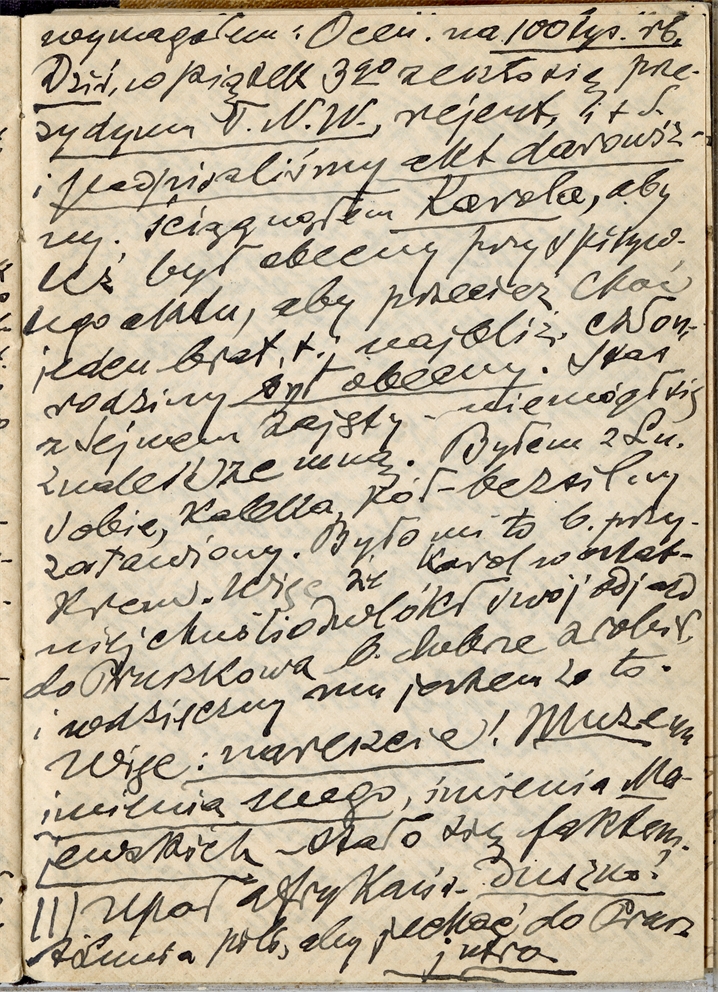 wymagałem: Ocen. na 100 tys. rb.
Dziś, w piątek 3go zeszło się pre-
zydyum T.N.W., rejent, i t d.
i podpisaliśmy akt darowiz-
ny. Ściągnąłem Karola, aby
też był obecny przy spisywa-
tego aktu, aby przecież choć
jeden brat, t. j. najbliż. człon.
rodziny był obecny. Stas
z Sejmem zajęty - nie mógł się
znaleść ze mną. Byłem z Lu.
sobie, kaleka, pół-bezsilny
zostawiony. Było mi to b. przy-
krem. Więc że Karol w ostat-
niej chwili odwlókł swój odjazd
do Pruszkowa b. dobrze zrobił,
i wdzięczny mu jestem za to.
Więc: nareszcie! Muzeum
imienia mego, imienia Ma-
jewskich - stało się faktem.
11) Upał afrykańs. Duszno!
do Prusz
pols, aby jechać jutro